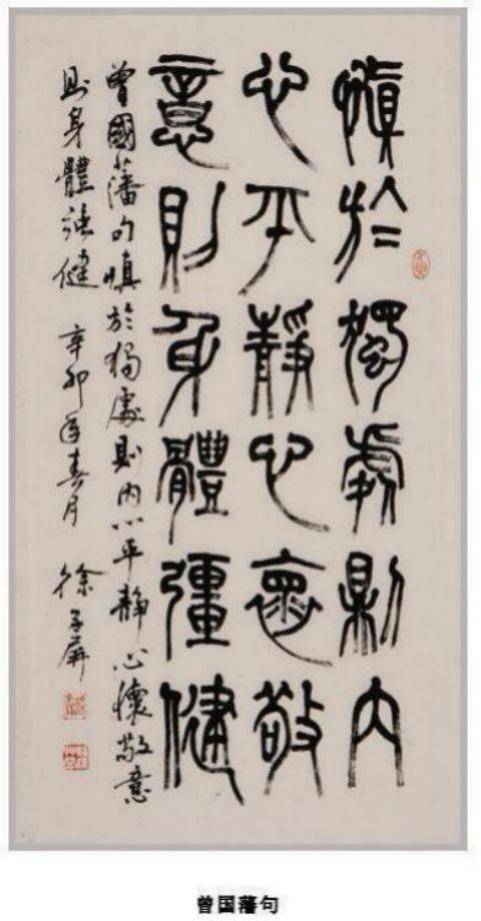 慎於獨處則內
心平靜心懷敬
意則身體彊健
曾國藩句慎於獨處則內心平靜心懷敬意
則身體強健 辛卯年春月 徐子屏
曾国藩句